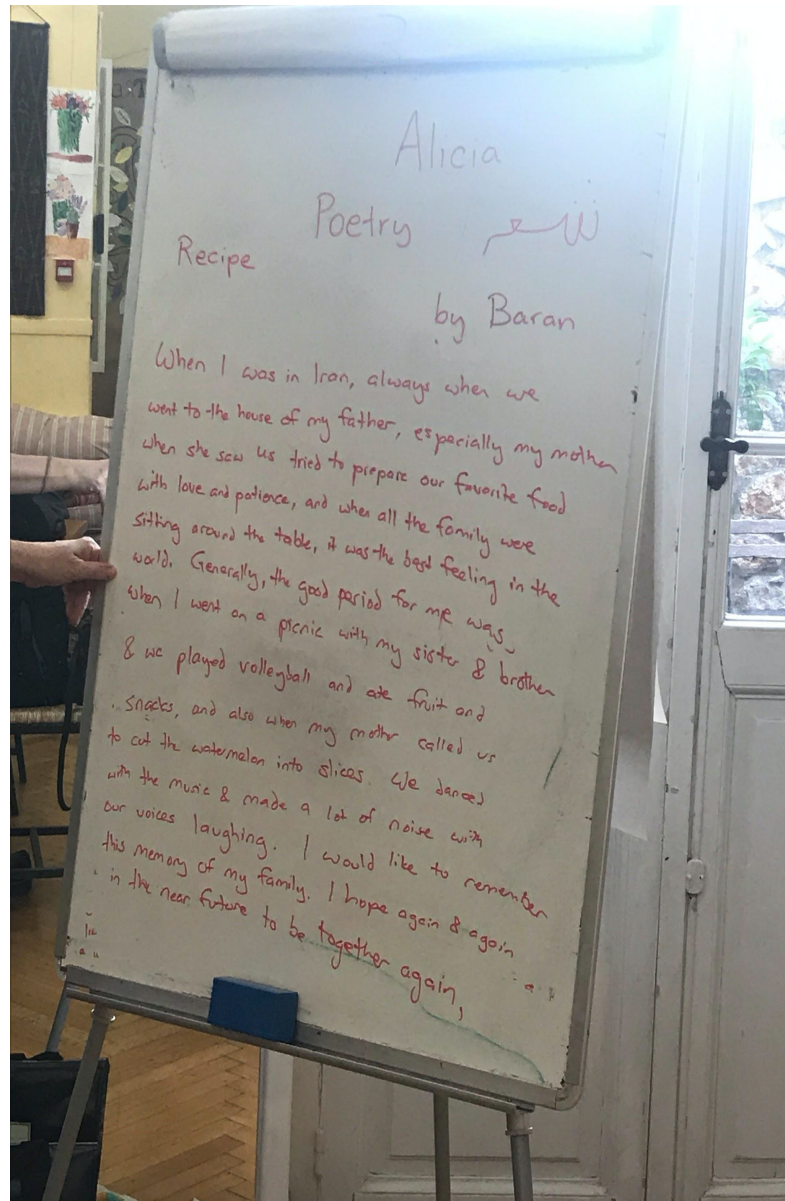 Alicia
Poetry شعر
Recipe
by Baran
When I was in Iran, always when we
went to the house of my father, especially my mother
when she saw us tried to prepare our favorite food
with love and patience, and when all the family were
sitting around the table, it was the best feeling in the
world. Generally, the good period for me was,
when I went on a picnic with my sister & brother
& we played volleyball and ate fruit and
snacks, and also when my mother called us
to cut the watermelon into slices. We danced
with the music & made a lot of noise with
our voices laughing. I would like to remember
this memory of my family. I hope again & again
in the near future to be together again,